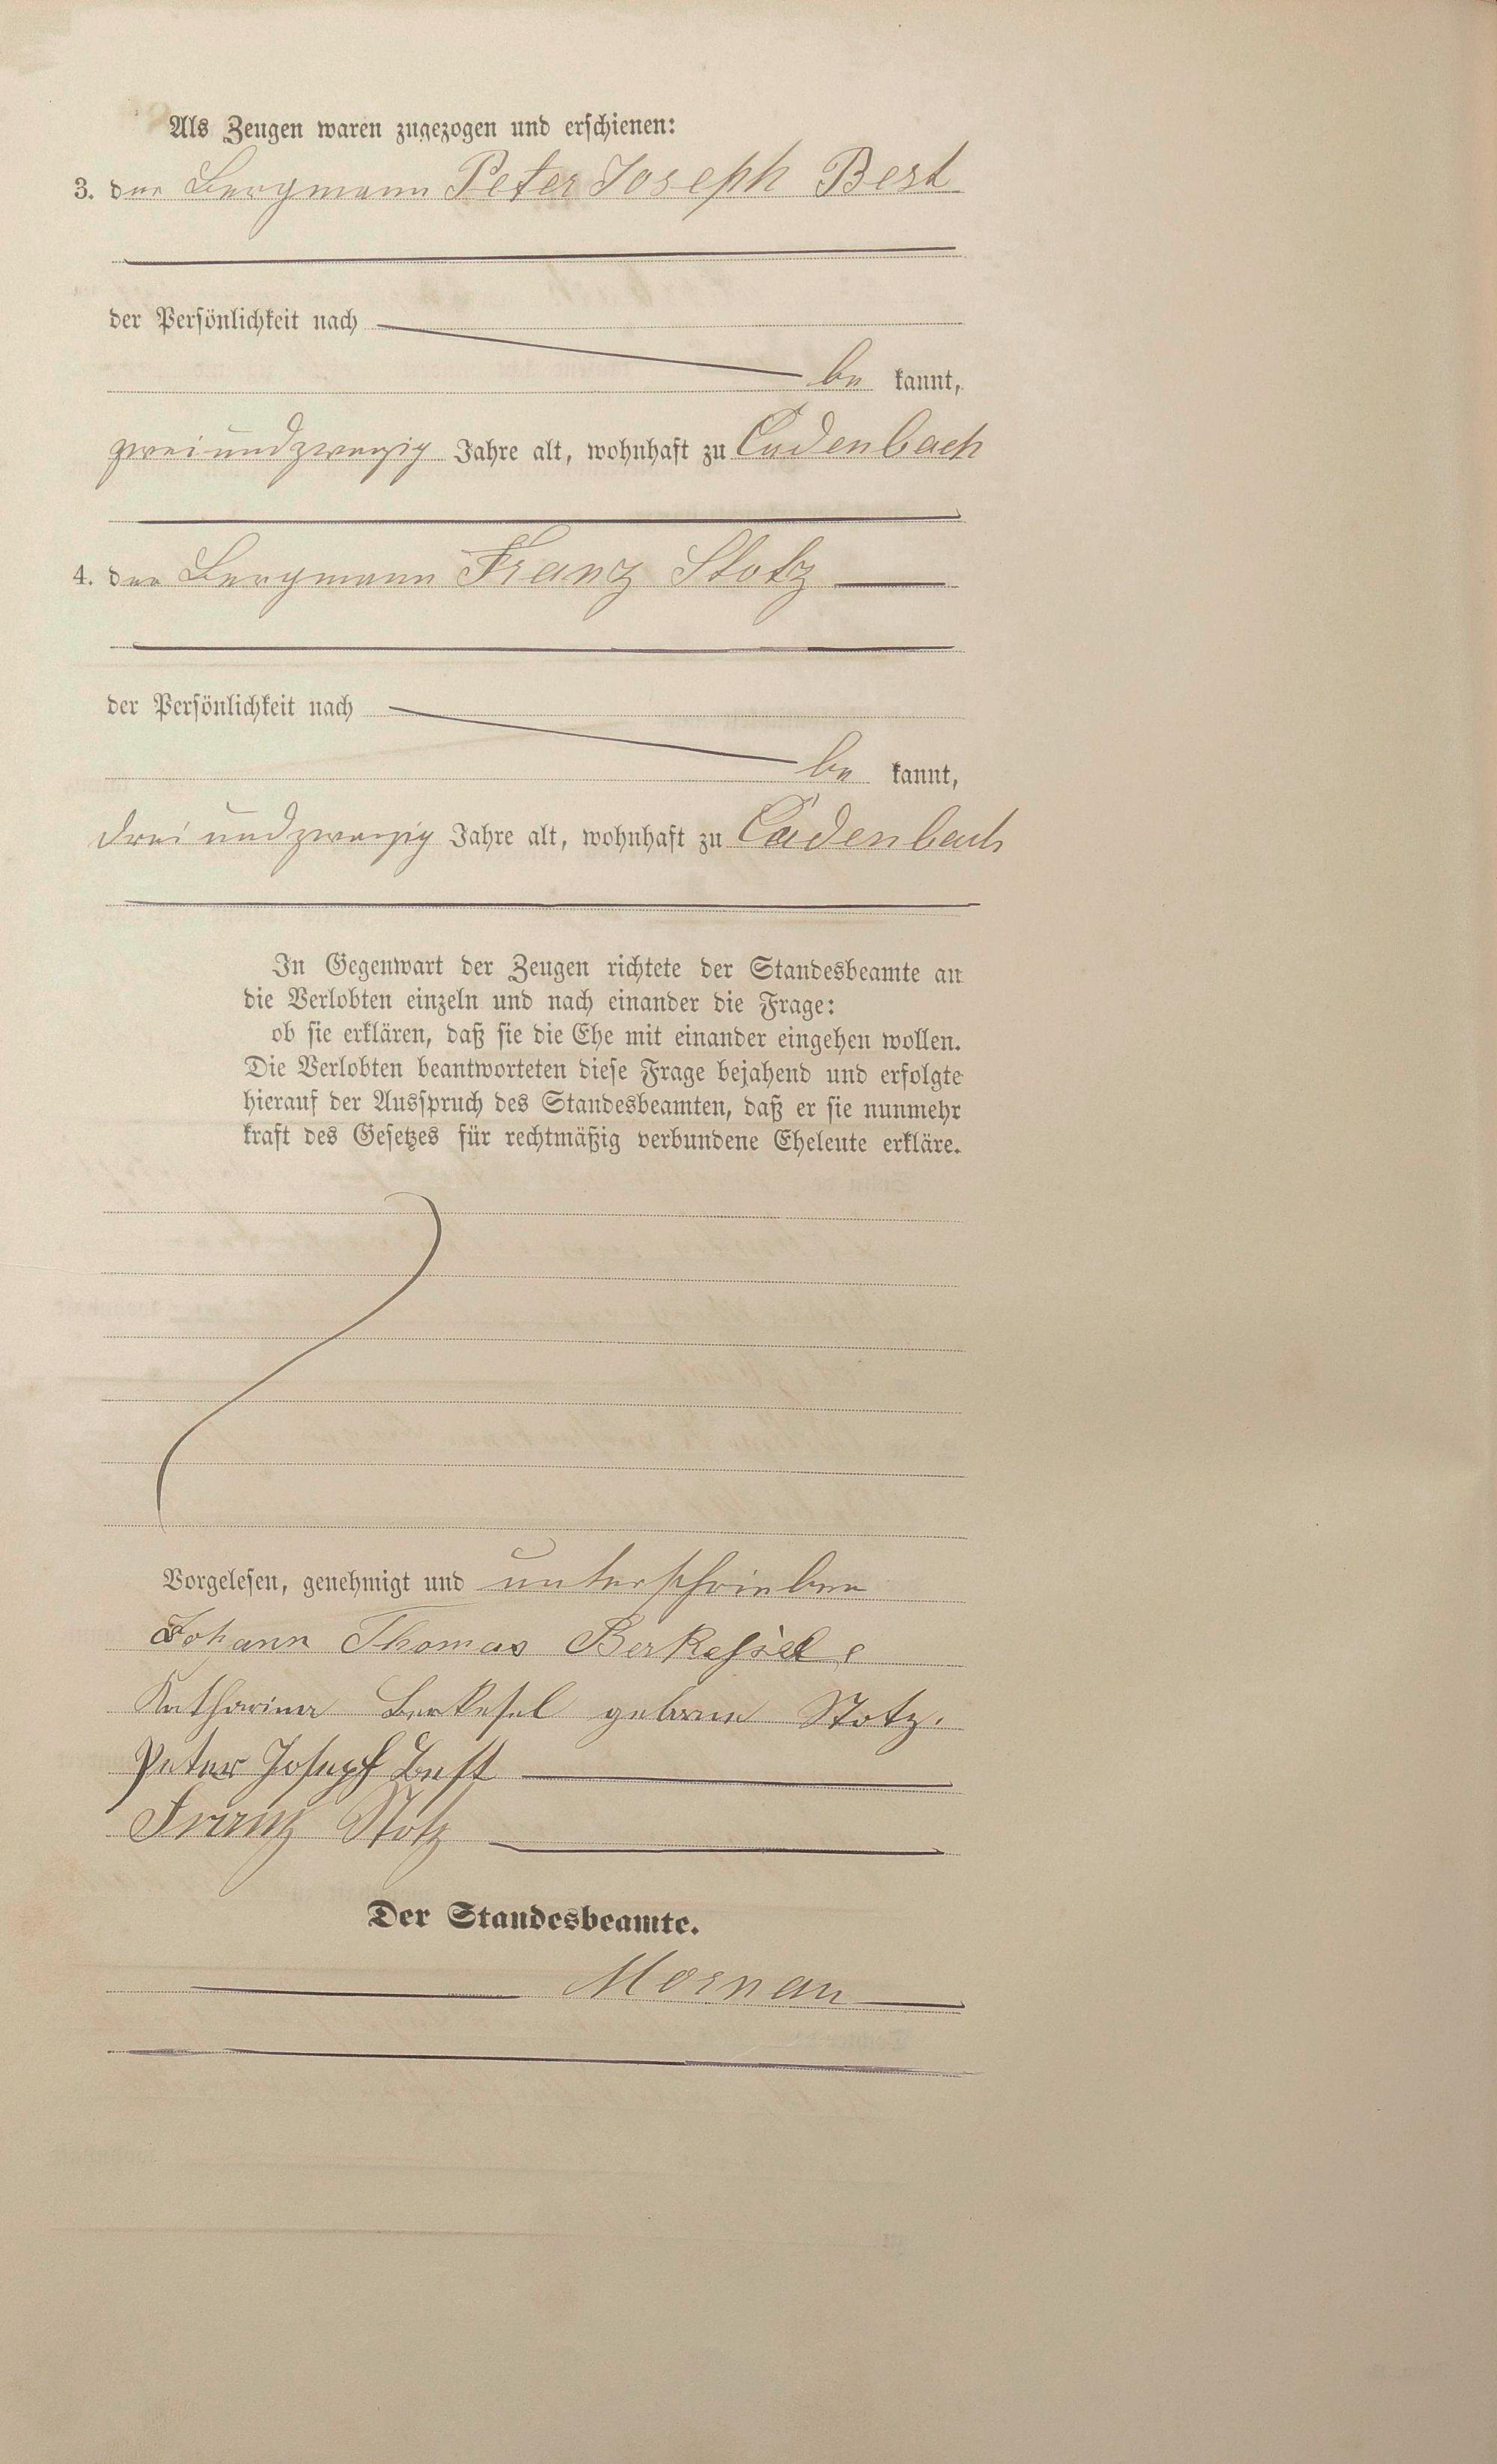 Als Zeugen waren zugezogen und erschienen:
3. der Bergmann Peter Joseph Best
der Persönlichkeit nach
be kannt,
zweiundzwanzig Jahre alt, wohnhaft zu Cadenbach
4. der Bergmann Franz Stotz
der Persönlichkeit nach
be kannt,
drei undzwanzig Jahre alt, wohnhaft zu Cadenbach
In Gegenwart der Zeugen richtete der Standesbeamte an
die Verlobten einzeln und nach einander die Frage:
ob sie erklären, daß sie die Ehe mit einander eingehen wollen.
Die Verlobten beantworteten diese Frage bejahend und erfolgte
hierauf der Ausspruch des Standesbeamten, daß er sie nunmehr
kraft des Gesetzes für rechtmäßig verbundene Eheleute erkläre.
Vorgelesen, genehmigt und unterschrieben
Johann Thomas
Katharina Berkesel geborene Stotz.
Peter Joseph Best
Franz Stotz
Der Standesbeamte.
Mornau